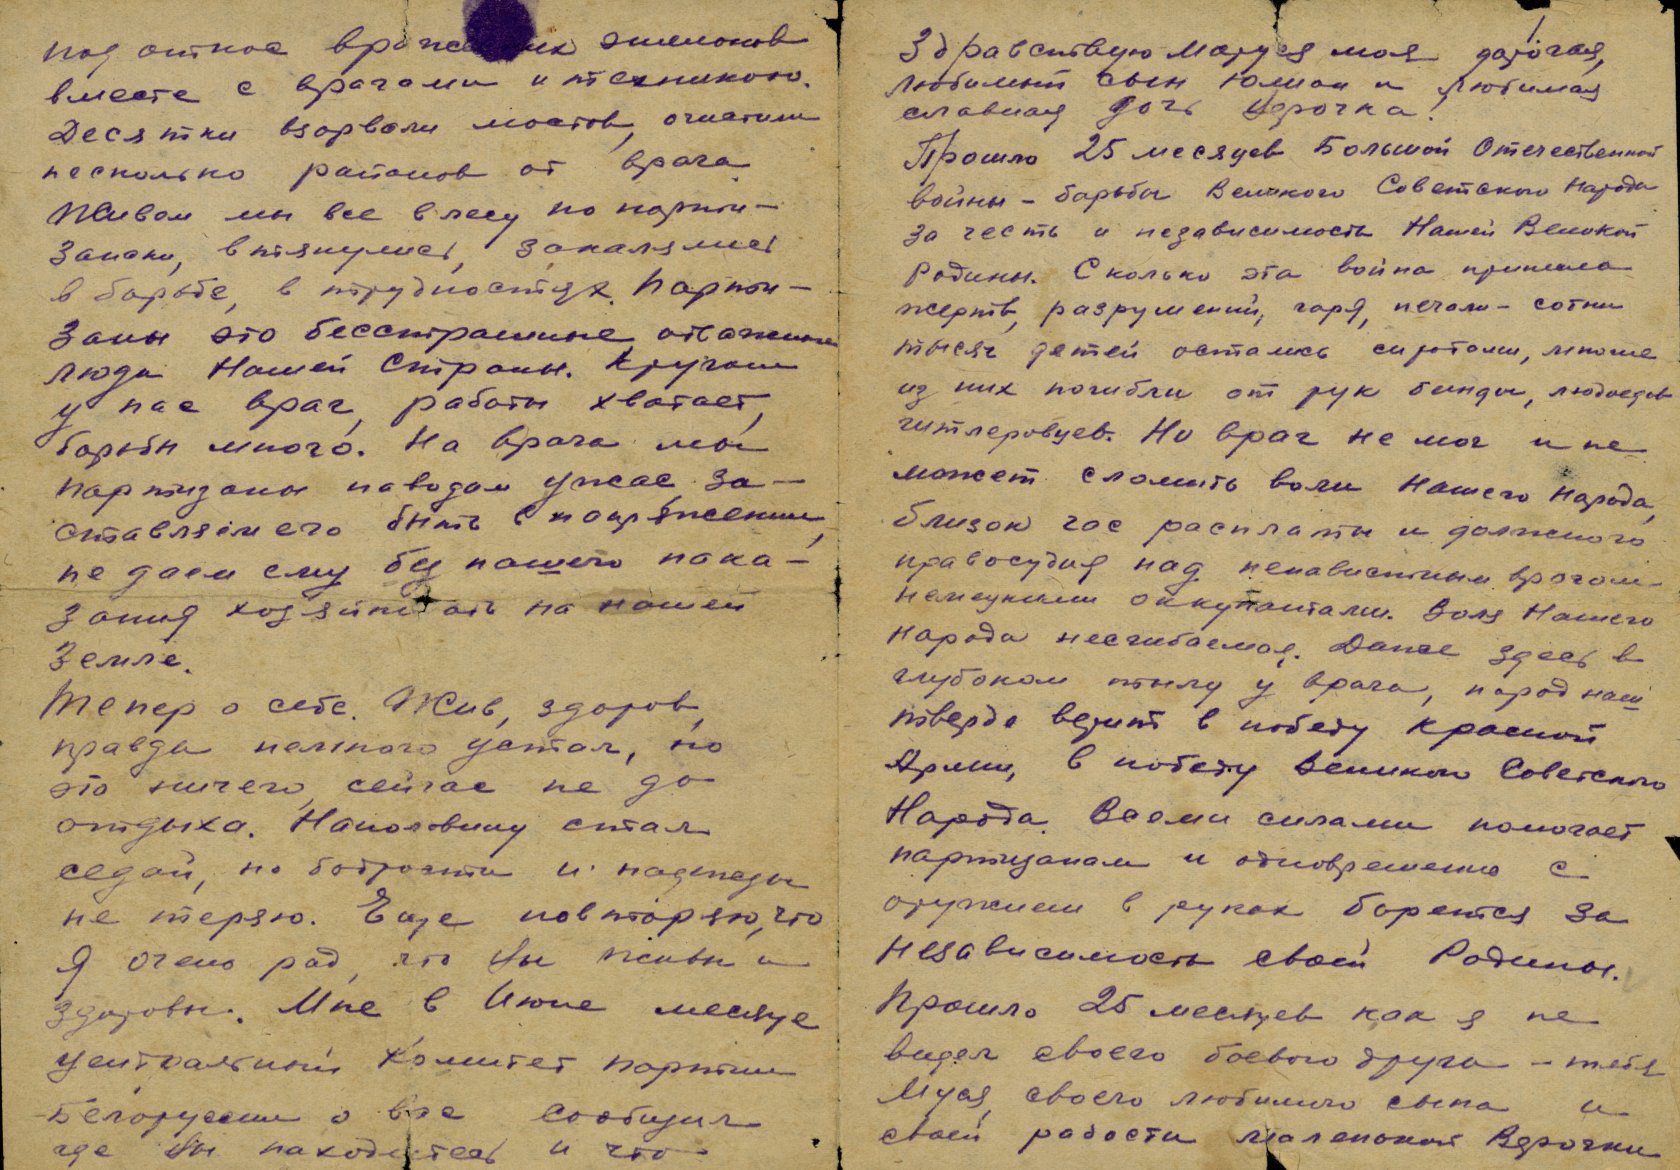 под откос вражеских эшелонов
вместе с врагами и техникою.
Десятки взорвали мостов, очистили
несколько районов от врага.
Живем мы все в лесу по парти-
зански, втянулись, закалялись
в борьбе, в трудностях. Парти-
заны это бесстрашные, отважные
люди Нашей Страны. Кругом
у нас враг, работы хватает,
борьбы много. На врага мы
партизаны наводим ужас, за-
ставляем его быть в напряжении,
не даем ему без нашего нака-
зания хозяйничать на нашей
Земле.
Тепер о себе. Жив, здоров,
правда немного устал, но
это ничего, сейчас не до
отдыха. Наполовину стал
седой, но бодрости и надежды
не теряю. Еще повторяю, что
Я очень рад, что Вы живы и
здоровы. Мне в Июне месяце
Центральный Комитет партии
Белоруссии о вас сообщил
где Вы находитесь и что
Здравствуй Маруся моя дорогая,
любимый сын Юлик и любимая
славная дочь
Прошло 25 месяцев Большой Отечественной
войны - борьбы Великого Советского Народа
за честь и независимость Нашей Великой
Родины. Сколько эта война принесла
жертв, разрушений, горя, печали - сотни
тысяч детей остались сиротами, многие
из них погибли от рук банды, людоедов
гитлеровцев. Но враг не мог и не
может сломить воли Нашего Народа,
близок час расплаты и должного
правосудия над ненавистным врагом -
немецкими оккупантами. Воля Нашего
Народа несгибаемая. Даже здесь в
глубоком тылу у врага, народ наш
твердо верит в победу Красной
Армии, в победу Великого Советского
Народа. Всеми силами помогает
партизанам и одновременно с
оружием в руках борется за
Независимость своей Родины.
Прошло 25 месяцев как я не
видел своего боевого друга - тебя
Муся, своего любимого сына и
своей радости маленькой